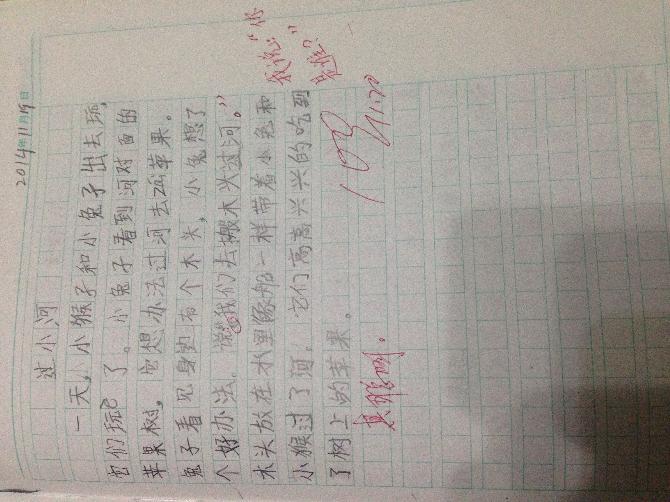 2014年11月19日
过小河
一天，小猴子和小兔子出去玩，
它们玩
了。小兔子看到河对面的
苹果树，它想办法过河去买苹果。
兔子看见身边有个木头，小兔想了
个好办法，我们去搬木头过河。”
木头放在水里像船一样带着小兔和
小猴过了河，它们高高兴兴的吃到
了树上的苹果。
真聪明。
11.20